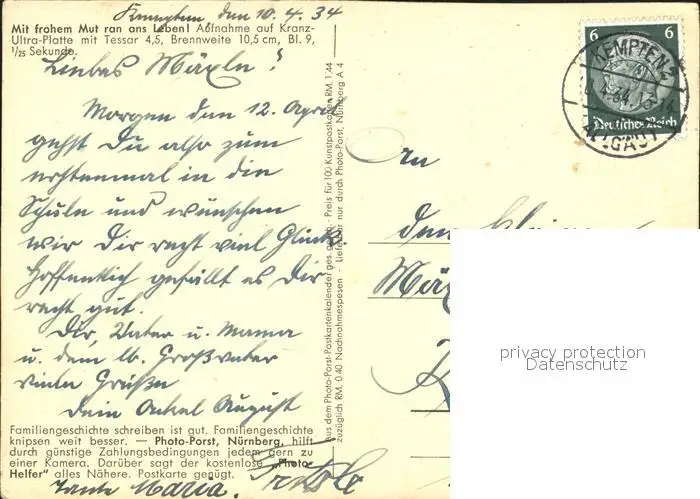 Kempten den 10.4.34
Mit frohem Mut ran ans Leben! Aufnahme auf Kranz-
Ultra-Platte mit Tessar 4,5, Brennweite 10,5 cm, Bl. 9,
1/25 Sekunde.
Liebes Mäxle!
Morgen den 12. April
gehst Du also zum
erstenmal in die
Schule und wünschen
wir Dir recht viel Glück.
Hoffentlich gefällt es Dir
recht gut.
Dir, Vater u. Mama
u. dem lb. Großvater
viele Grüße
Dein Onkel August
Familiengeschichte schreiben ist gut. Familiengeschichte
knipsen weit besser. — Photo-Porst, Nürnberg, hilft
durch günstige Zahlungsbedingungen jedem gern zu
einer Kamera. Darüber sagt der kostenlose „Photo-
Helfer" alles Nähere. Postkarte genügt.
Tante Maria.
aus dem Photo-Porst-Postkartenkalender ges. gesch. - Preis für 100 Kunstpostkarten RM. 1,44
zuzüglich RM. 0.40 Nachnahmespesen - Lieferbar nur durch Photo-Porst, Nürnberg A 4
6 6
Deutsches Reich
KEMPTEN 2
ALLGÄU
An
den
privacy protection
Datenschutz